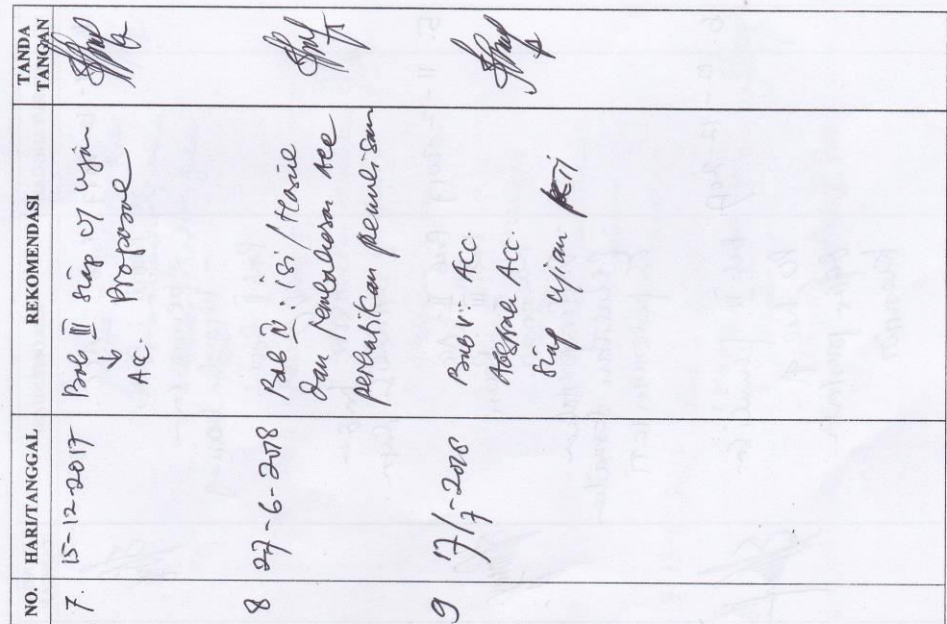 NO. HARI/TANGGAL REKOMENDASI TANDA TANGAN
7. 15-12-2017 Bab III siap u/ ujian
↓ Proposal
Acc.
8 27-6-2018 Bab IV: Isi/Hasil
dan pembahasan Acc
perhatikan penulisan
9 17/7-2018 Bab V: Acc.
Acc.
Siap ujian